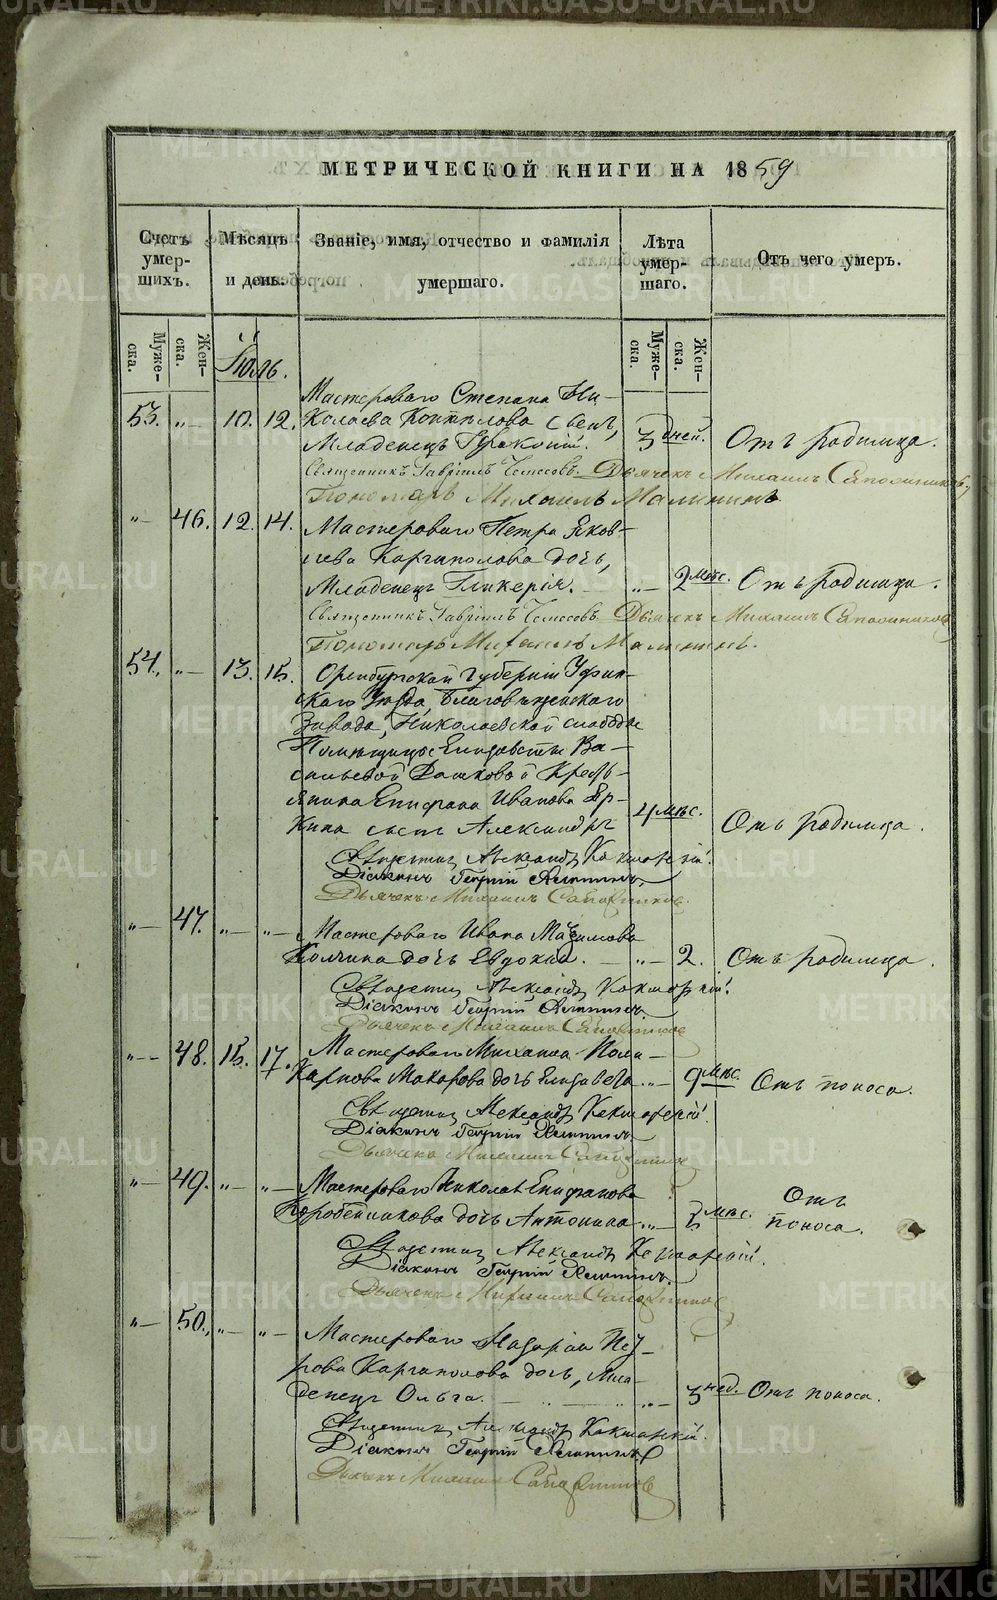 МЕТРИЧЕСКОЙ КНИГИ НА 1859
Счетъ умер-шихъ.
Мѣсяцъ и день.
Званіе, имя, отчество и фамилія умершаго.
Лѣта умер-шаго.
Отъ чего умеръ.
Муже-ска.
Жен-ска.
Муже-ска.
Жен-ска.
Іюль.
Мастероваго Степана Ни-
53. „ 10. 12. колаева сынъ,
Младенецъ Прокопій. 3 дней. Отъ родимца.
Священникъ Гавріилъ Дьячекъ Михаилъ Сапожниковъ,
Пономарь Михаилъ Малининъ
„ 46. 12. 14. Мастероваго Петра Яков-
лева Каргаполова дочь,
Младенецъ Гликерія. „ 2 мѣс. Отъ родимца.
Священникъ Гавріилъ Дьячекъ Михаилъ Сапожниковъ
Пономарь Михаилъ Малининъ.
54. „ 13. 15. Оренбургской Губерніи Уфим-
скаго Уѣзда, Благовѣщенскаго
Завода, Николаевской слободы
Помѣщицы Елисаветы Ва-
сильевой Дашковой Кресть-
янина Епифана Иванова
сынъ Александръ 4 мѣс. Отъ родимца.
Священникъ Александръ
Діаконъ Георгій
Дьячекъ Михаилъ Сапожниковъ.
„ 47. „ „ Мастероваго Ивана Максимова
дочь Евдокія. „ 2. Отъ родимца.
Священникъ Александръ
Діаконъ Георгій
Дьячекъ Михаилъ Сапожниковъ
„ 48. 15. 17. Мастероваго Михаила Поли-
карпова Макарова дочь Елисавета. „ 9 мѣс. Отъ поноса.
Священникъ Александръ
Діаконъ Георгій
Дьячекъ Михаилъ Сапожниковъ
„ 49. „ „ Мастероваго Николая Епифанова
Коробейникова дочь Антонина „ мѣс. Отъ поноса.
Священникъ Александръ
Діаконъ Георгій
Дьячекъ Михаилъ Сапожниковъ
„ 50. „ „ Мастероваго Назарія
Каргаполова дочь, мла-
денецъ Ольга. „ 3 нед. Отъ поноса.
Священникъ Александръ
Діаконъ Георгій
Дьячекъ Михаилъ Сапожниковъ
METRIKI.GASO-URAL.RU